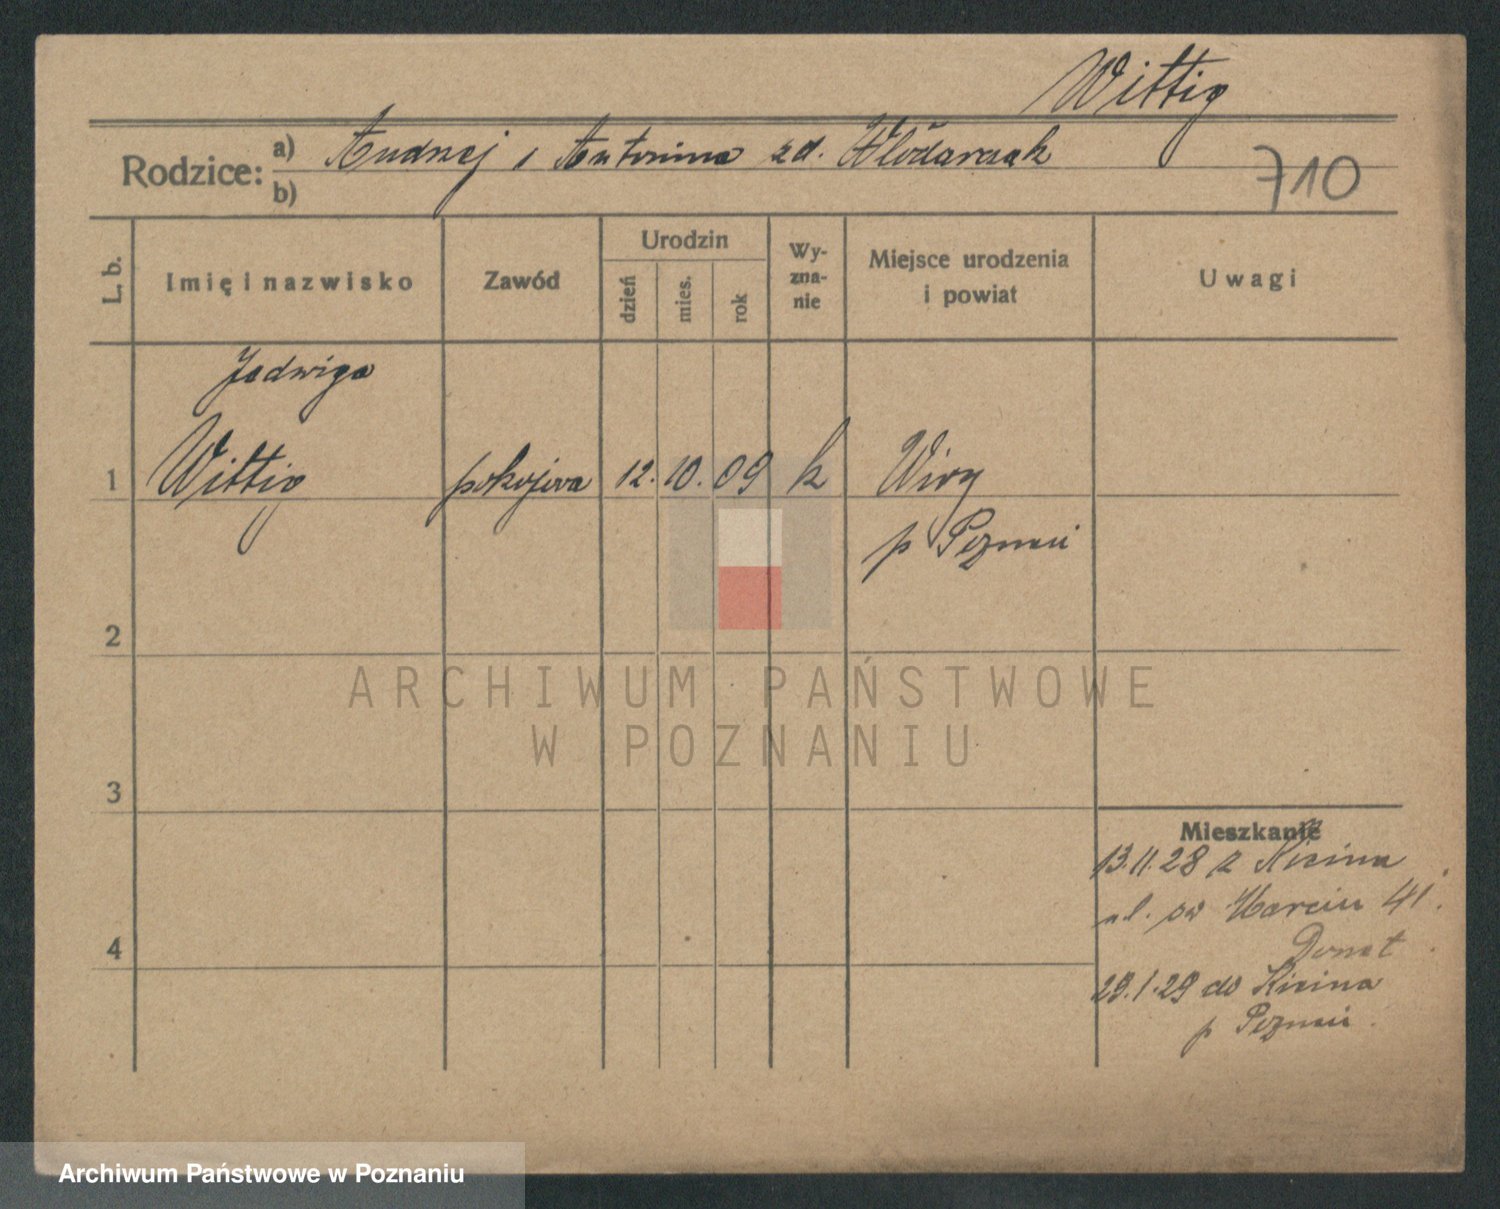 Wittig
Rodzice: a) Andrzej i Antonina zd. Włodarczak
b)
710
L. b.
Imię i nazwisko
Zawód
Urodzin
dzień
mies.
rok
Wy-
zna-
nie
Miejsce urodzenia
i powiat
Uwagi
Jadwiga
1 Wittig pokojowa 12. 10. 09 k Wiry
p Poznań
2
3
4
Mieszkanie
13.11.28 z Kicina
ul. św Marcin 41.
Donat
29.1.29 do Kicina
p Poznań.
ARCHIWUM PAŃSTWOWE
W POZNANIU
Archiwum Państwowe w Poznaniu